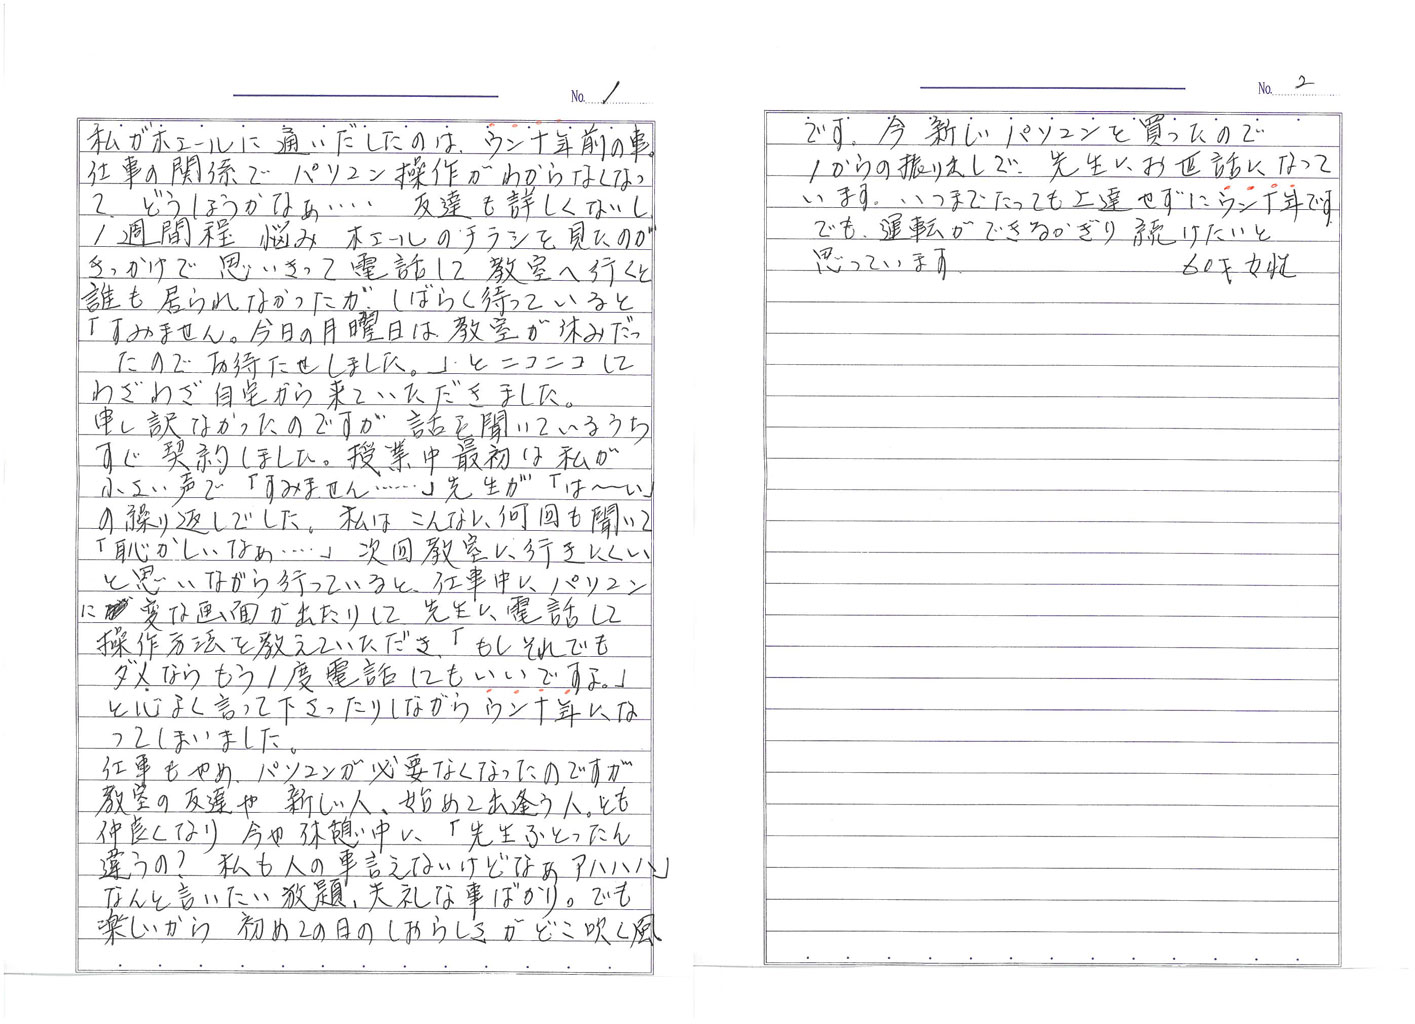 No. 1
私がホエールに通いだしたのは、ウン十年前の事。
仕事の関係で パソコン操作がわからなくなっ
て、どうしようかなぁ‥‥ 友達も詳しくないし
1週間程 悩み ホエールのチラシを見たのが
きっかけで 思いきって電話して 教室へ行くと
誰も居られなかったが、しばらく待っていると
「すみません。今日の月曜日は 教室が休みだっ
たので お待たせしました。」とニコニコして
わざわざ自宅から来ていただきました。
申し訳なかったのですが 話を聞いているうち
すぐ 契約しました。授業中 最初は 私が
小さい声で「すみません‥‥‥」先生が「は〜〜い」
の繰り返しでした。私はこんなに何回も聞いて
「恥かしいなぁ‥‥‥」次回教室に行きにくい
と思いながら行っていると、仕事中に パソコン
に 変な画面が出たりして 先生に電話して
操作方法を教えていただき、「もしそれでも
ダメならもう1度電話してもいいですよ。」
と心よく言って下さったりしながら ウン十年にな
ってしまいました。
仕事もやめ、パソコンが必要なくなったのですが
教室の友達や 新しい人、始めて出逢う人。とも
仲良くなり 今や休憩中に、「先生ふとったん
違うの? 私も人の事言えないけどなぁ アハハハ」
なんと言いたい放題、失礼な事ばかり。でも
楽しいから 初めての日のしおらしさが どこ吹く風
No. 2
です。今 新しいパソコンを買ったので
1からの振り出しで、先生にお世話になって
います。いつまでたっても上達せずにウン十年です
でも、運転ができるかぎり 続けたいと
思っています. 60才 女性